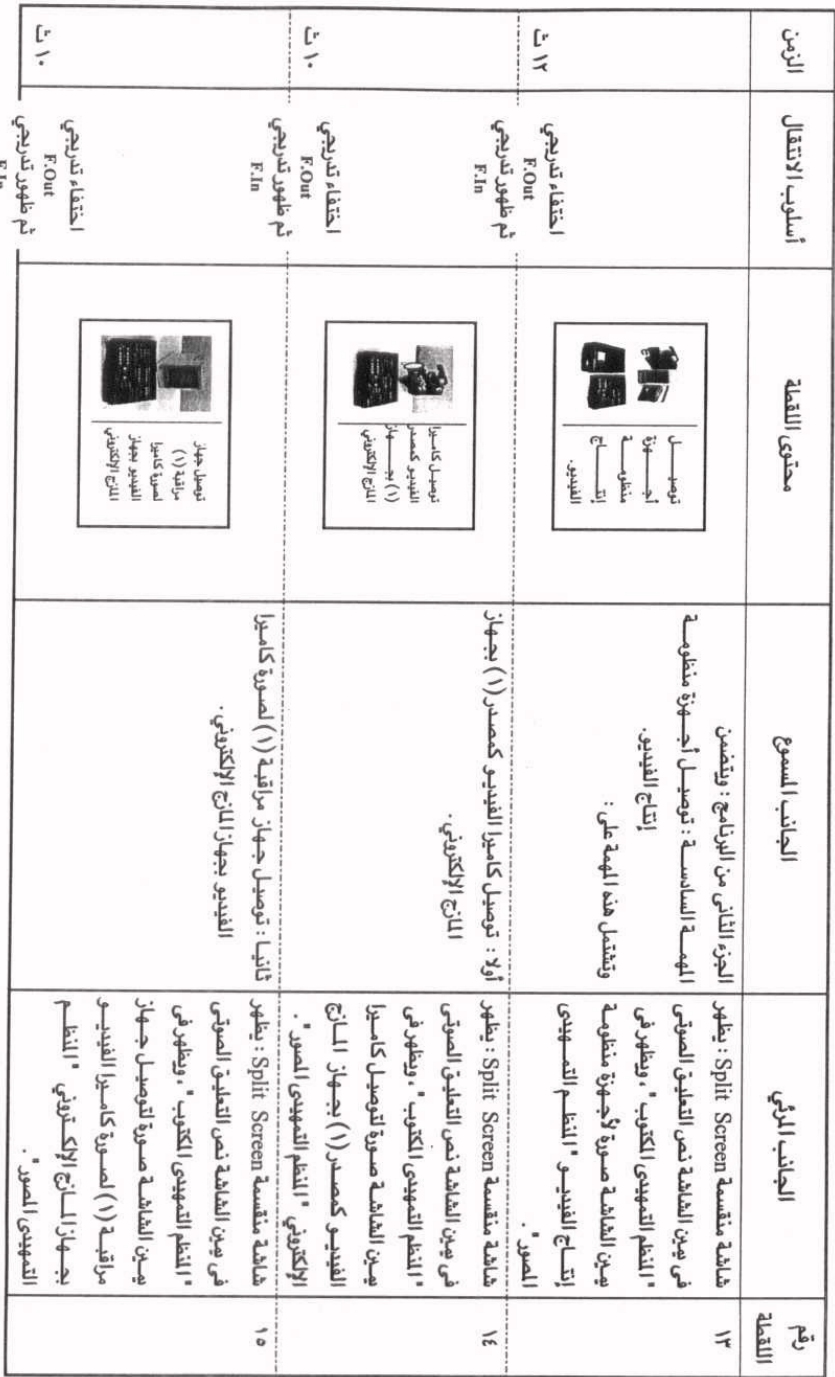 رقم
اللقطة
الجانب المرئي
الجانب المسموع
محتوى اللقطة
أسلوب الانتقال
الزمن
١٣
شاشة منقسمة Split Screen : يظهر
فى يمين الشاشة نص التعليق الصوتى
"المنظم التمهيدى المكتوب" ، ويظهر فى
يمين الشاشة صورة لأجهزة منظومة
إنتاج الفيديو "المنظم التمهيدى
المصور" .
الجزء الثانى من البرنامج : ويتضمن
المهمة السادسة : توصيل أجهزة منظومة
إنتاج الفيديو.
وتشتمل هذه المهمة على :
توصيل
أجهزة
منظومة
إنتاج
الفيديو.
اختفاء تدريجي
F.Out
ثم ظهور تدريجي
F.In
١٢ ث
١٤
شاشة منقسمة Split Screen : يظهر
فى يمين الشاشة نص التعليق الصوتى
"المنظم التمهيدى المكتوب" ، ويظهر فى
يمين الشاشة صورة لتوصيل كاميرا
الفيديو كمصدر (١) بجهاز المازج
الإلكتروني "المنظم التمهيدى المصور" .
أولا : توصيل كاميرا الفيديو كمصدر (١) بجهاز
المازج الإلكتروني .
توصيل كاميرا
الفيديو كمصدر
(١) بجهاز
المازج الإلكتروني
اختفاء تدريجي
F.Out
ثم ظهور تدريجي
F.In
١٠ ث
١٥
شاشة منقسمة Split Screen : يظهر
فى يمين الشاشة نص التعليق الصوتى
"المنظم التمهيدى المكتوب" ، ويظهر فى
يمين الشاشة صورة لتوصيل جهاز
مراقبة (١) لصورة كاميرا الفيديو
بجهاز المازج الإلكتروني "المنظم
التمهيدى المصور" .
ثانيا : توصيل جهاز مراقبة (١) لصورة كاميرا
الفيديو بجهاز المازج الإلكتروني .
توصيل جهاز
مراقبة (١)
لصورة كاميرا
الفيديو بجهاز
المازج الإلكتروني
اختفاء تدريجي
F.Out
ثم ظهور تدريجي
F.In
١٠ ث